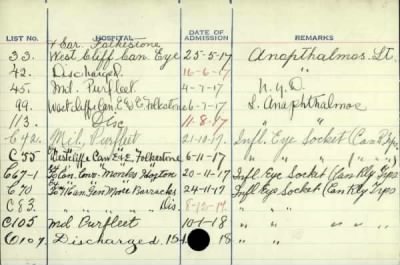 LIST NO. HOSPITAL DATE OF ADMISSION REMARKS
& Ear. Folkestone
33. West Cliff Can. Eye 25-5-17 Anapthalmos. Lt.
42. Discharged. 16-6-17 "
45. Mil. Purfleet. 4-7-17 N.Y.D.
99. Westcliffe Can. E & E. Folkestone 6-7-17 L. Anaphthalmos
113. Dis. 11.8.17
C42. Mil, Purfleet 21.10.17. Infl. Eye Socket (Can Rly Tps
C55 Westcliffe Can E&E. Folkestone 6-11-17 " " " ( " " )
C67-1 Can. Conv. Monks Horton 20-11-17 Infl. Eye Socket (Can Rly Tps
C70 Can Gen Moore Barracks 24-11-17 Infl Eye Socket (Can Rly Tps
C83. " " " " Dis. 8-12-17 " " "
C105 Mil Purfleet 10-1-18 " " " " "
C107. Discharged. 15 18 " " "